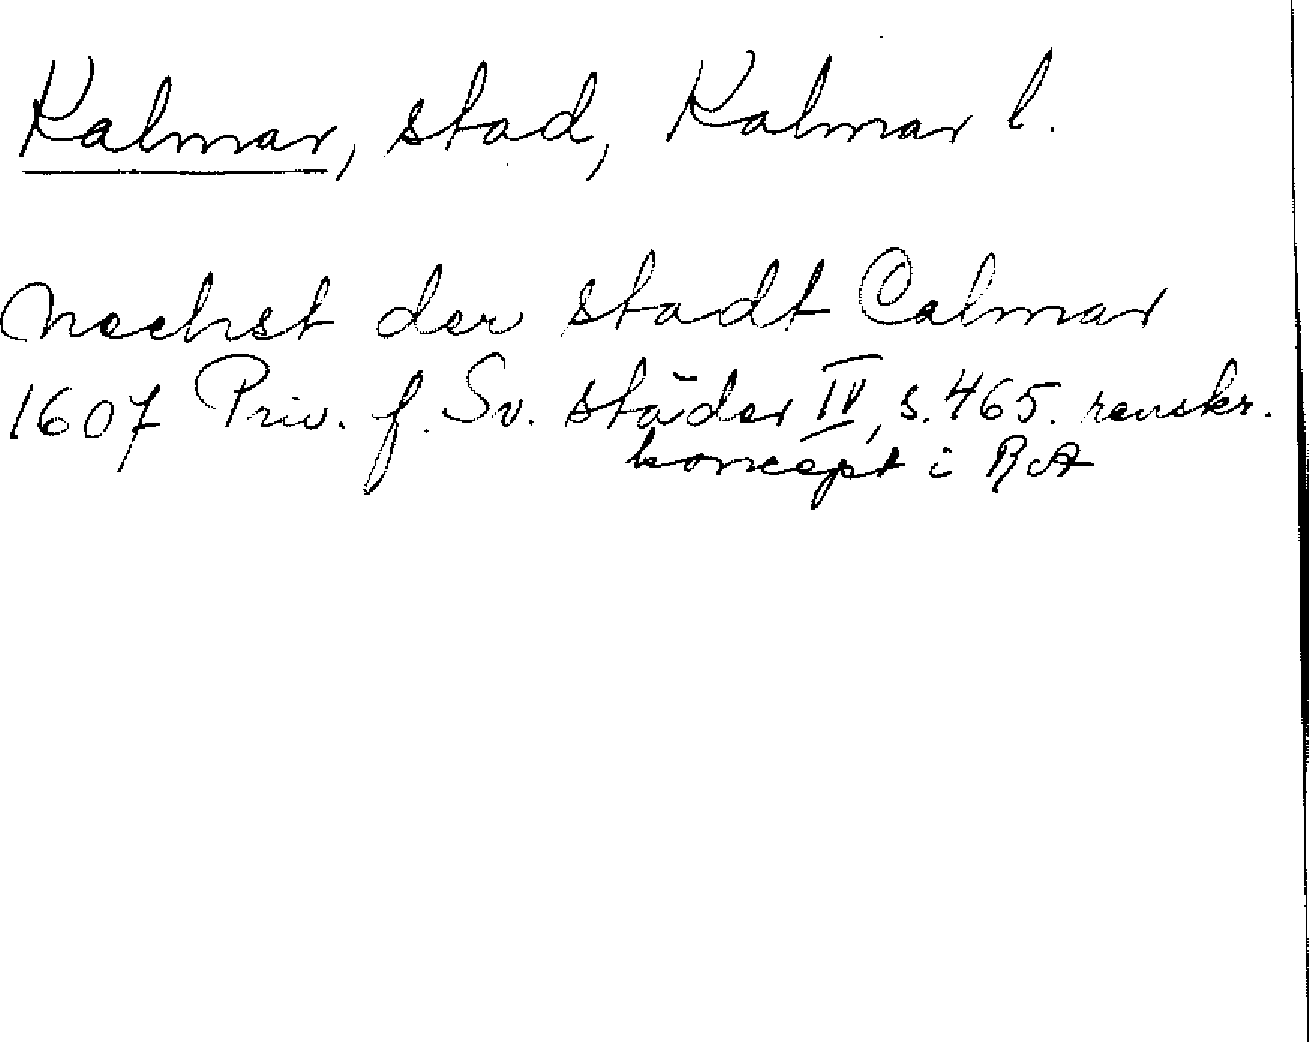 Kalmar, stad, Kalmar l.
Nechst der stadt Calmar
1607 Priv. f. Sv. städer IV, s. 465. renskr.
koncept i RA